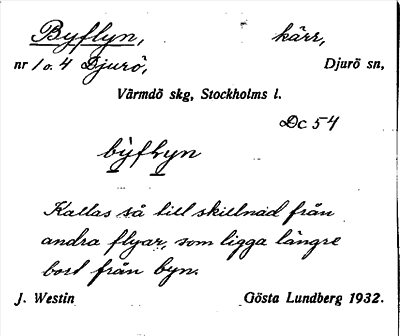 Byflyn, kärr,
nr 1 o. 4 Djurö, Djurö sn,
Värmdö skg, Stockholms l.
Dc 54
bỳflyn
Kallas så till skillnad från
andra flyar, som ligga längre
bort från byn.
J. Westin Gösta Lundberg 1932.